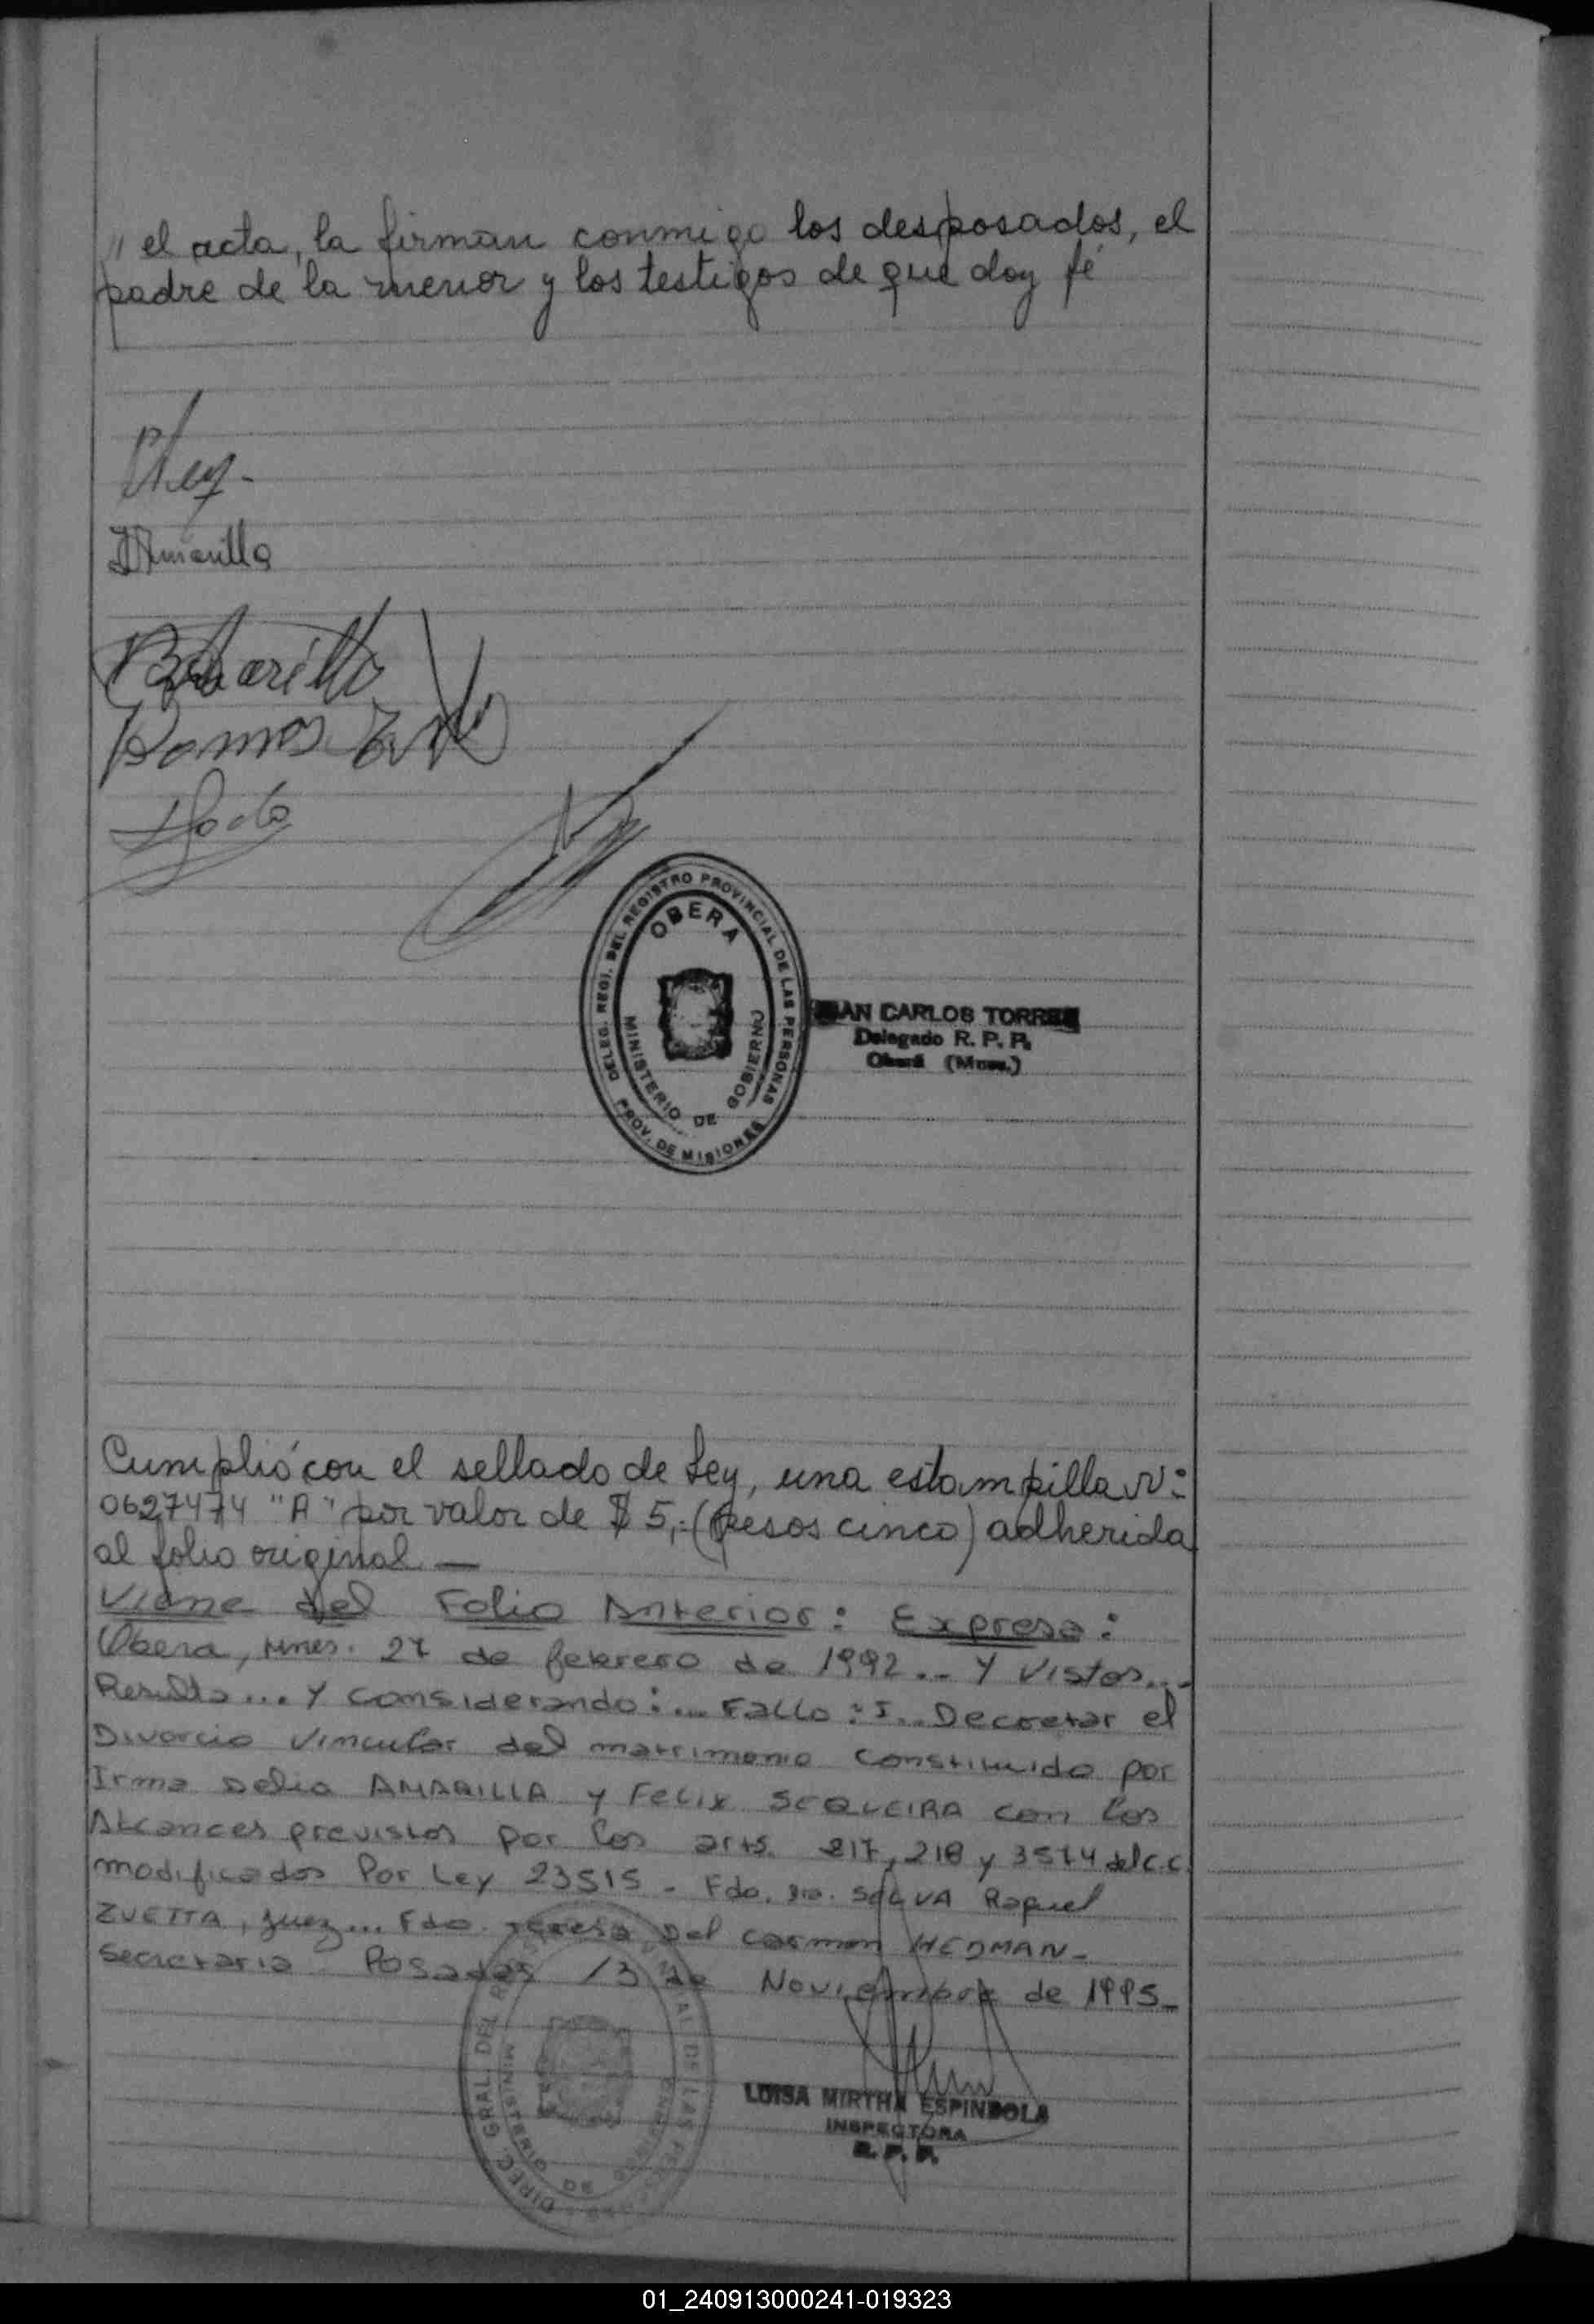 " el acta, la firman conmigo los desposados, el
padre de la menor y los testigos de que doy fé
IAmarilla
Ramos
OBERA
DELEG. REGI. DEL REGISTRO PROVINCIAL DE LAS PERSONAS
MINISTERIO DE GOBIERNO
PROV. DE MISIONES
JUAN CARLOS TORRES
Delegado R. P. P.
Oberá (Mnes.)
Cumplió con el sellado de Ley, una estampilla N:
0627474 "A" por valor de $ 5,-(pesos cinco) adherida
al folio original —
Viene del Folio Anterior: Expresa:
Obera, Mnes. 27 de febrero de 1992... Y Vistos...-
Resulta... Y considerando:... Fallo: I... Decretar el
Divorcio Vincular del matrimonio constituido por
Irma Delia AMARILLA y Felix SEQUEIRA con los
Alcances previstos por los arts. 217, 218 y 3574 del C.C.
modificados Por Ley 23515 - Fdo. Dra. SELVA Raquel
ZUETTA, Juez... Fdo. Teresa Del Carmen HEDMAN-
Secretaria - Posadas 13 de Noviembre de 1995-
DIREC. GRAL. DEL
AL DE LAS PERSONAS
MINISTERIO DE
LUISA MIRTHA ESPINDOLA
INSPECTORA
R. P. P.
01_240913000241-019323